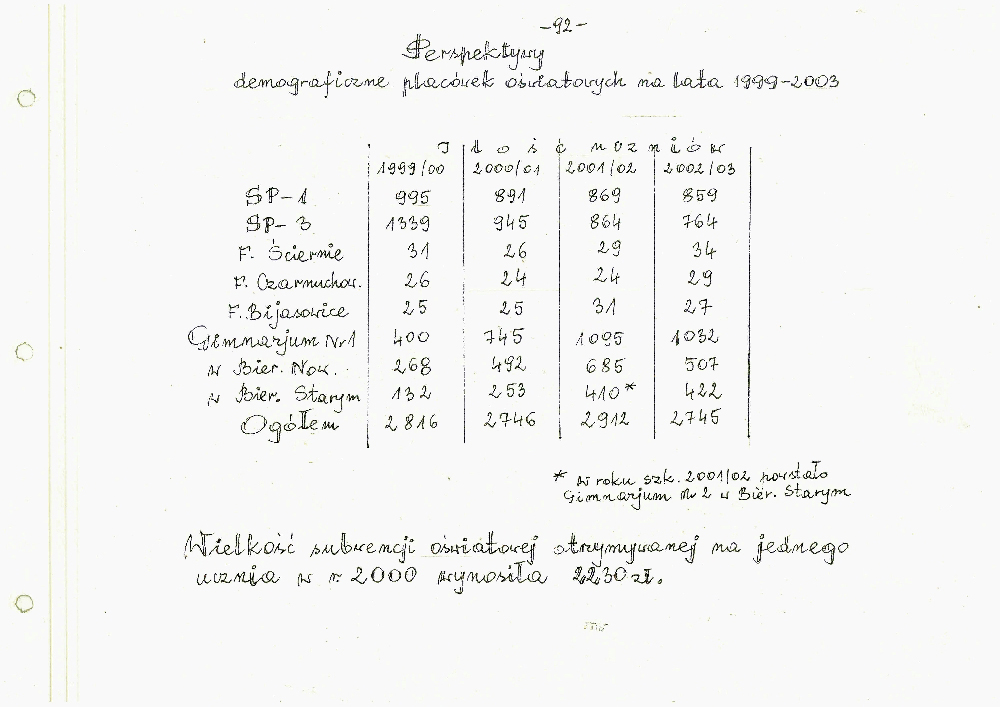 -92-
Perspektywy
demograficzne placówek oświatowych na lata 1999-2003
Ilość uczniów
1999/00 2000/01 2001/02 2002/03
SP-1 995 891 869 859
SP-3 1339 945 864 764
F. Ściernie 31 26 29 34
F. Czarnuchow. 26 24 24 29
F. Bijasowice 25 25 31 27
Gimnazjum Nr1 400 745 1095 1032
w Bier. Now. 268 492 685 507
w Bier. Starym 132 253 410* 422
Ogółem 2816 2746 2912 2745
* w roku szk. 2001/02 powstało
Gimnazjum Nr 2 w Bier. Starym
Wielkość subwencji oświatowej otrzymywanej na jednego
ucznia w r. 2000 wynosiła 2230 zł.